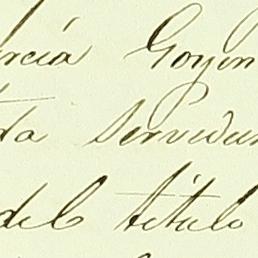 rcía Goyen
da Servidum
del título